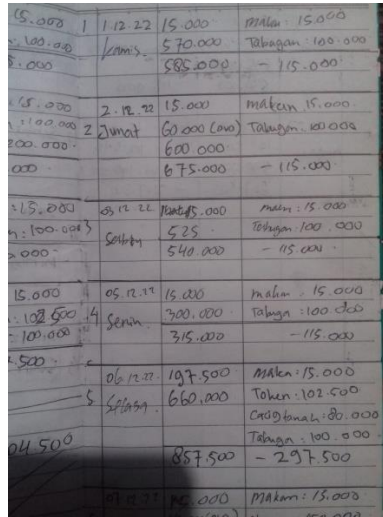 15.000 1 1.12.22 15.000 makan: 15.000
100.000 kamis 570.000 Tabagan: 100.000
5.000 585.000 - 115.000
15.000 2.12.22 15.000 makan 15.000
:100.000 2 Jumat 60.000 (ovo) Tabugan: 100.000
200.000. 600.000
000 675.000 - 115.000
:15.000 03.12.22 15.000 makan: 15.000
n: 100.000 3 525 Tabugan. 100.000
.000 540.000 - 115.000
15.000 05.12.22 15.000 makan. 15.000
: 102.500 4 Senin 300.000 Tabugan :100.000
- 100.000 315.000 -115.000
.500
06.12.22. 197.500 Makan: 15.000
5 Selasa 660.000 Token: 102.500
80.000
Tabugan : 100.000
04.500 857.500 - 297.500
07.12.22 .000 Makan: 15.000